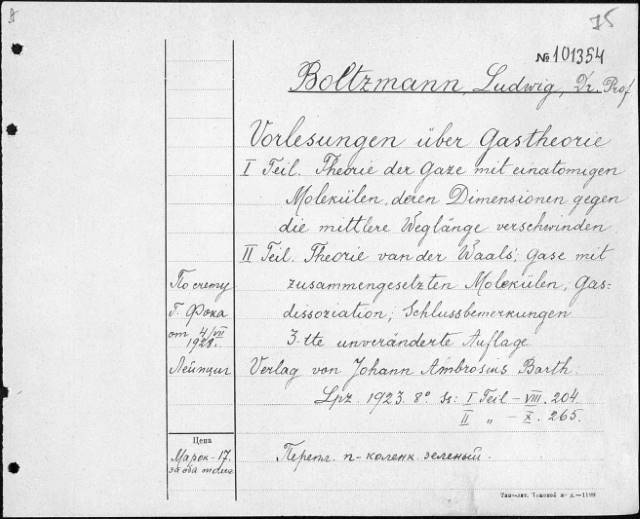 8
75
№ 101354
Boltzmann, Ludwig, Dr. Prof
Vorlesungen über Gastheorie
I Teil. Theorie der Gaze mit einatomigen
Molekülen, deren Dimensionen gegen
die mittlere Weglänge verschwinden
II Teil. Theorie van der Waals; Gase mit
zusammengesetzten Molekülen; Gas-
dissoziation; Schlussbemerkungen
3-tte unveränderte Auflage
Verlag von Johann Ambrosius Barth.
Lpz. 1923. 8° Ss: I Teil – VIII. 204.
II „ – X. 265.
По счету
Г. Фока
от 4/VII
1928г.
Лейпциг
Цена
Марок-17.
за оба тома
Перепл. п-коленк. зеленый.